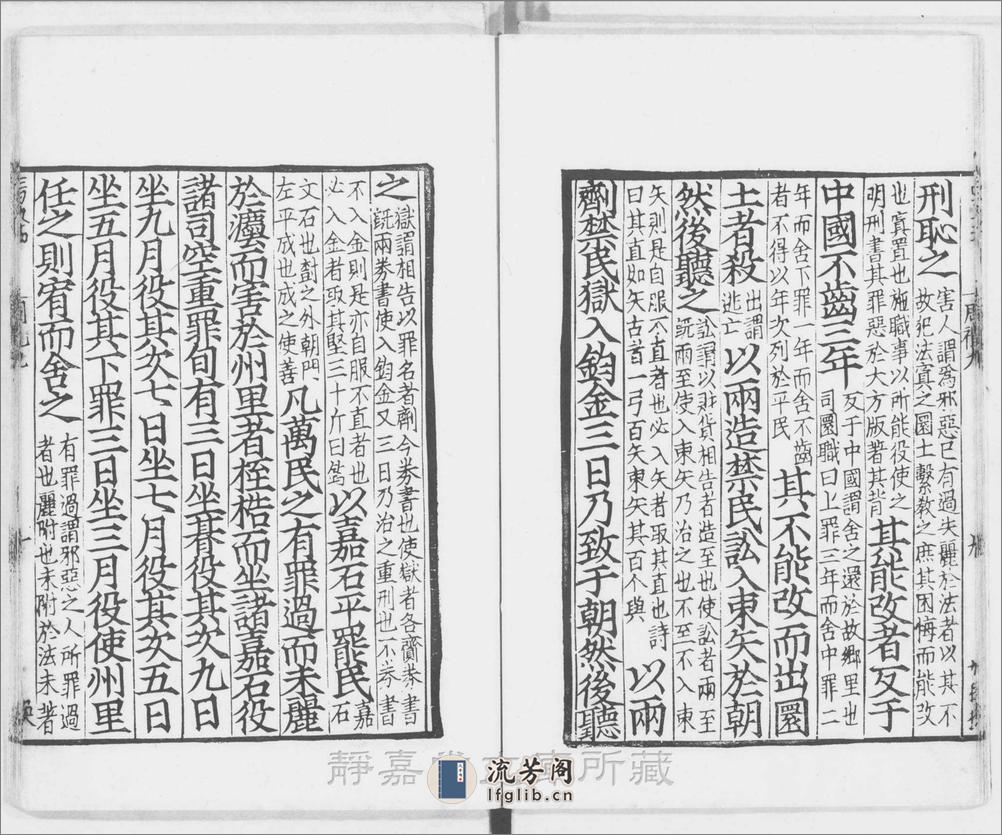 刑恥之害人謂爲邪惡已有過失麗於法者以其不故犯法寘之圜土繫教之庶其困悔而能改
也寘置也施職事以所能役使之明刑書其罪惡於大方版著其背其能改者反于
中國不齒三年反于中國謂舍之還於故鄉里也司圜職曰上罪三年而舍中罪二
年而舍下罪一年而舍不齒者不得以年次列於平民其不能改而出圜
土者殺出謂逃亡以兩造禁民訟入束矢於朝
然後聽之訟謂以財貨相告者造至也使訟者兩至既兩至使入束矢乃治之也不至不入束
矢則是自服不直者也必入矢者取其直也詩曰其直如矢古者一弓百矢束矢其百个與以兩
劑禁民獄入鈞金三日乃致于朝然後聽
之獄謂相告以罪名者劑今券書也使獄者各齎券書既兩券書使入鈞金又三日乃治之重刑也不券書
不入金則是亦自服不直者也必入金者取其堅三十斤曰鈞以嘉石平罷民嘉石
文石也樹之外朝門左平成也成之使善凡萬民之有罪過而未麗
於灋而害於州里者桎梏而坐諸嘉石役
諸司空重罪旬有三日坐朞役其次九日
坐九月役其次七日坐七月役其次五日
坐五月役其下罪三日坐三月役使州里
任之則宥而舍之有罪過謂邪惡之人所罪過者也麗附也未附於法未著
靜嘉堂文庫所藏
流芳阁
lfglib.cn